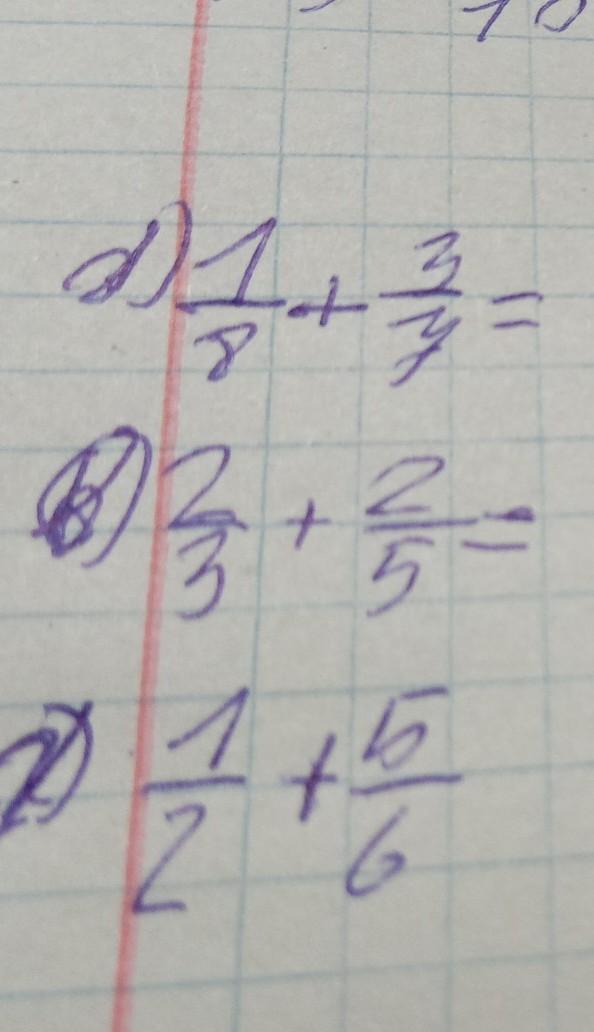 10
1/8 + 3/7 =
б) 2/3 + 2/5 =
1/2 + 5/6